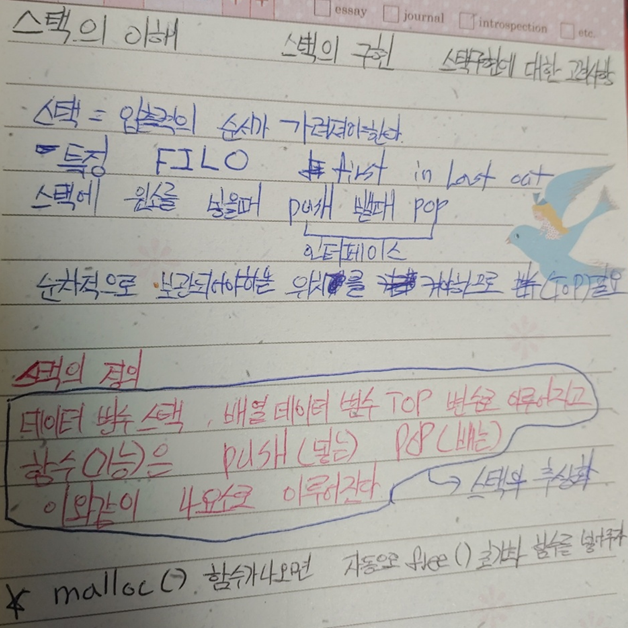 essay journal introspection etc.
스택의 이해 스택의 구현 스택구현에 대한 고려사항
스택 = 입출력의 순서가 가려져야한다.
- 특징 FILO first in Last out
스택에 원소를 넣을때 push 뺄때 pop
인터페이스
순차적으로 보관되어야하는 위치를 하므로 변수(TOP)필요
스택의 정의
데이터 변수 스택 . 배열 데이터 변수 TOP 변수로 이루어지고
함수(기능)은 push(넣는) POP(빼는)
이와같이 4요소로 이루어진다
스택의 추상화
* malloc() 함수가나오면 자동으로 free() 초기화 함수를 넣어주자